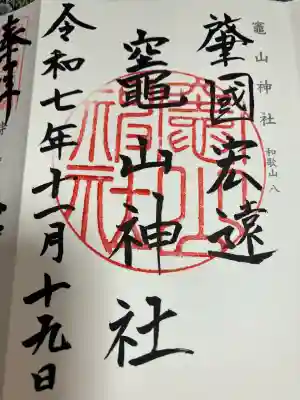 竈山神社
和歌山 八
肇國宏遠
竈山神社
令和七年十一月十九日
奉拝